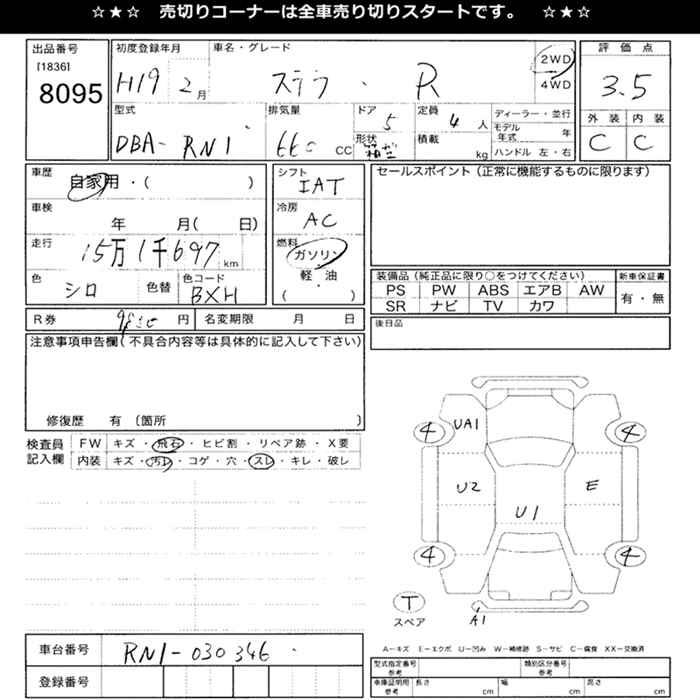 ☆★☆ 売切りコーナーは全車売り切りスタートです。 ☆★☆
出品番号
[1836]
8095
初度登録年月
H19 2月
車名・グレード
ステラ・ R
2WD
4WD
評価点
3.5
外装 内装
C C
型式
DBA- RN1
排気量
660 CC
ドア
5
形状
箱型
定員
4 人
積載
kg
ディーラー・並行
モデル年式 年
ハンドル 左・右
車歴
自家用・( )
車検
年 月( 日)
走行
15万1千697 km
色
シロ
色替
色コード
BXH
シフト
IAT
冷房
AC
燃料
ガソリン
・
軽・油
( )
セールスポイント(正常に機能するものに限ります)
装備品(純正品に限り○をつけてください)
PS PW ABS エアB AW
SR ナビ TV カワ
新車保証書
有・無
R券 円
名変期限 月 日
後日品
注意事項申告欄(不具合内容等は具体的に記入して下さい)
修復歴 有〔箇所 〕
検査員記入欄
FW キズ・飛石・ヒビ割・リペア跡・X要
内装 キズ・汚レ・コゲ・穴・スレ・キレ・破レ
4 UA1 4
U2 U1 E
4 4
T
スペア
A1
A−キズ E−エクボ U−凹み W−補修跡 S−サビ C−腐食 XX−交換済
車台番号
RN1-030346
登録番号
型式指定番号
参考
類別区分番号
参考
車庫証明用
参考
長さ cm 幅 cm 高さ cm